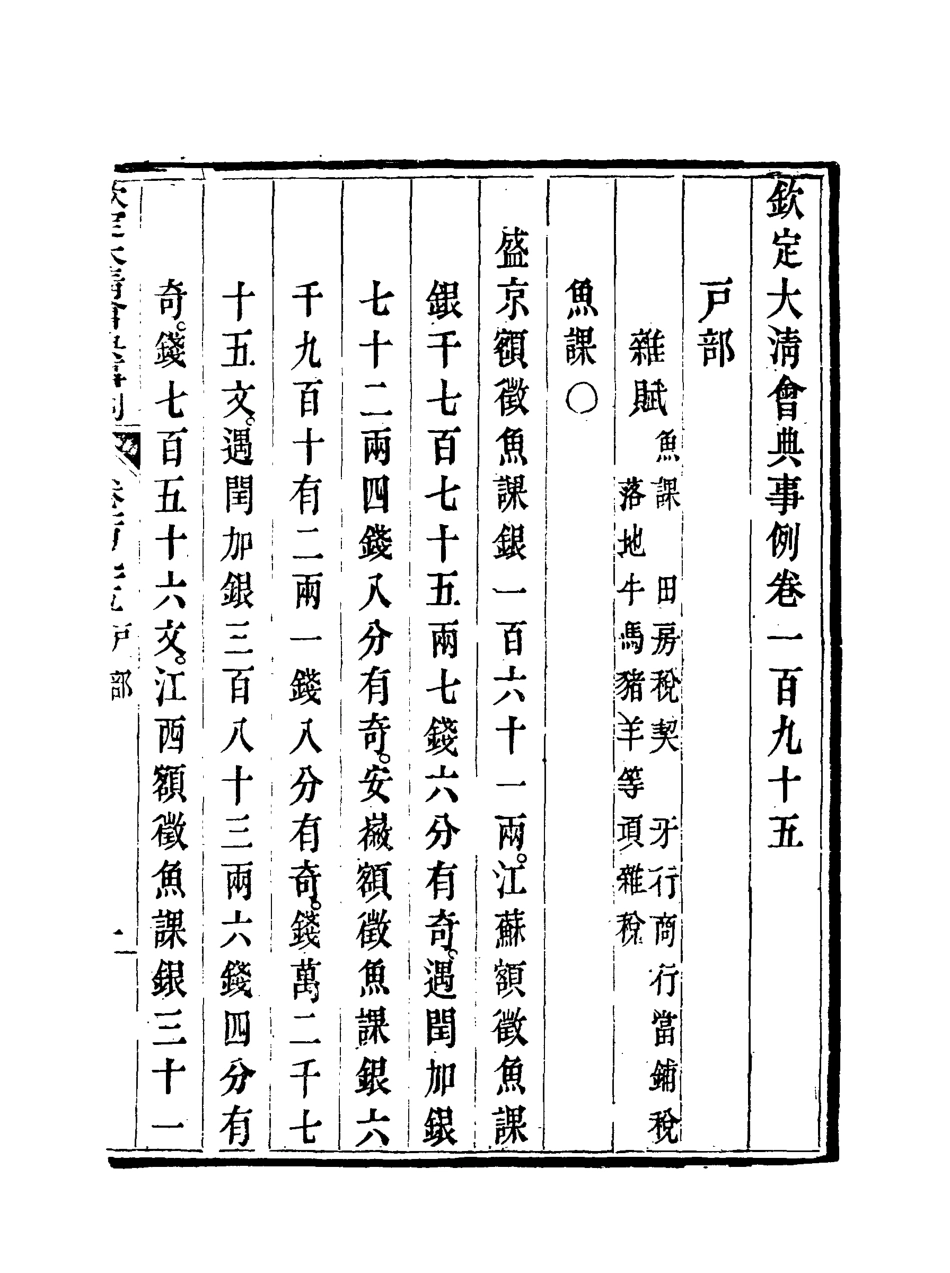 欽定大淸會典事例卷一百九十五
戸部
雜賦 魚課 田房稅契 牙行商行當鋪稅
落地牛馬豬羊等項雜稅
魚課〇
盛京額徵魚課銀一百六十一兩。江蘇額徵魚課
銀千七百七十五兩七錢六分有奇。遇閏加銀
七十二兩四錢八分有奇。安徽額徵魚課銀六
千九百十有二兩一錢八分有奇。錢萬二千七
十五文。遇閏加銀三百八十三兩六錢四分有
奇。錢七百五十六文。江西額徵魚課銀三十一
戸部